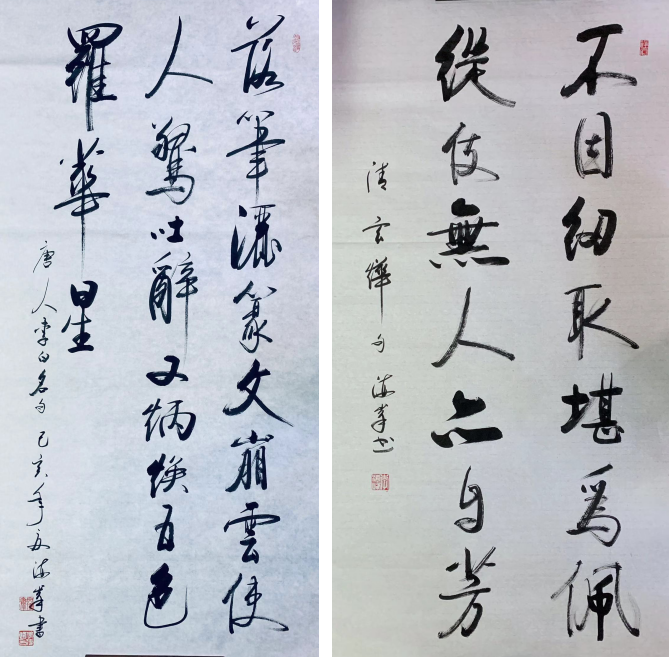 落筆灑篆文崩雲使
人驚吐辭又炳煥五色
羅華星
唐人李白名句己亥年夏海峯書
不因紉取堪爲佩
縱使無人亦自芳
清玄燁句海峯书